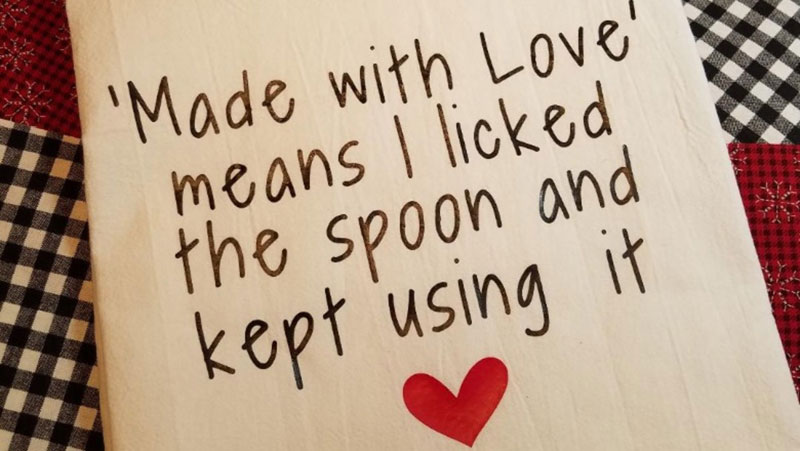 'Made with Love'
means I licked
the spoon and
kept using it